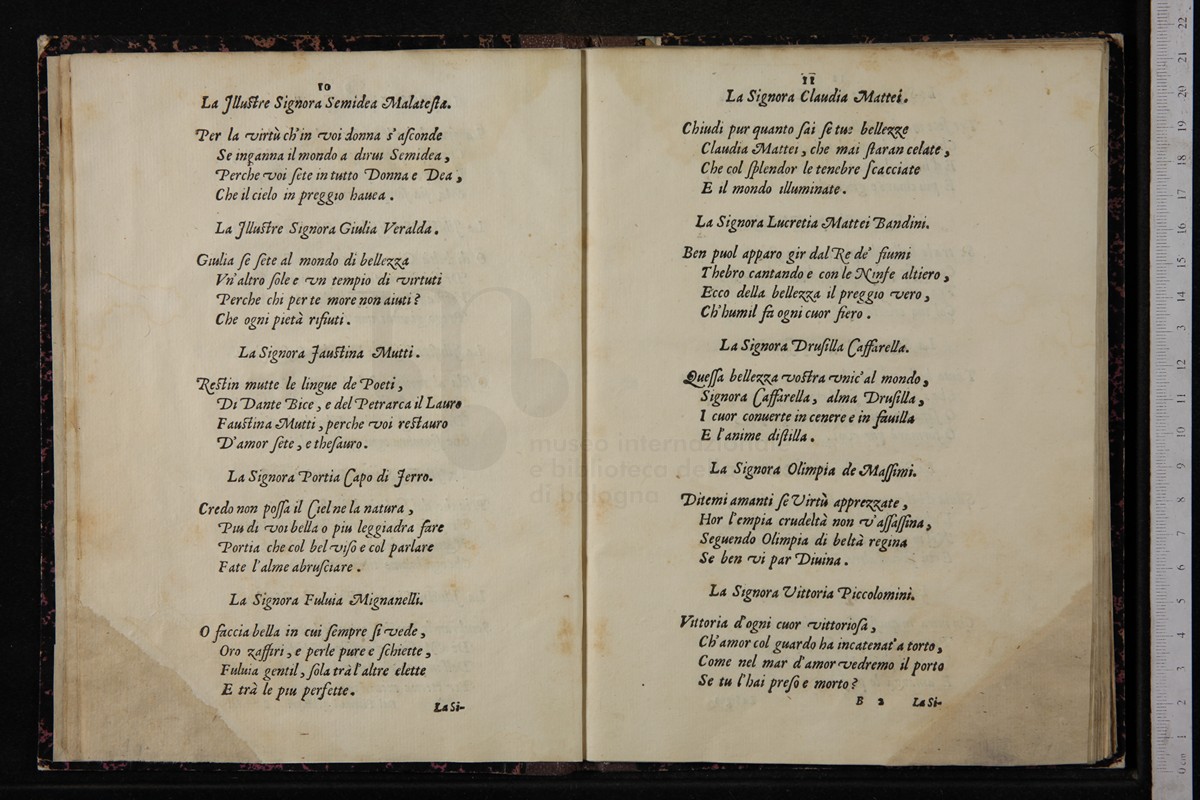 10
La Jlluſtre Signora Semidea Malateſta.
Per la virtù ch'in voi donna s'aſconde
Se inganna il mondo a dirui Semidea,
Perche voi ſete in tutto Donna e Dea,
Che il cielo in preggio hauea.
La Jlluſtre Signora Giulia Veralda.
Giulia ſe ſete al mondo di bellezza
Vn'altro ſole e vn tempio di virtuti
Perche chi per te more non aiuti?
Che ogni pietà rifiuti.
La Signora Fauſtina Mutti.
Reſtin mutte le lingue de Poeti,
Di Dante Bice, e del Petrarca il Lauro
Fauſtina Mutti, perche voi reſtauro
D'amor ſete, e theſauro.
La Signora Portia Capo di Ferro.
Credo non poſſa il Ciel ne la natura,
Piu di voi bella o piu leggiadra fare
Portia che col bel viſo e col parlare
Fate l'alme abruſciare.
La Signora Fuluia Mignanelli.
O faccia bella in cui ſempre ſi vede,
Oro zaffiri, e perle pure e ſchiette,
Fuluia gentil, ſola trà l'altre elette
E trà le piu perfette.
La Si-
11
La Signora Claudia Mattei.
Chiudi pur quanto ſai ſe tue bellezze
Claudia Mattei, che mai ſtaran celate,
Che col ſplendor le tenebre ſcacciate
E il mondo illuminate.
La Signora Lucretia Mattei Bandini.
Ben puol apparo gir dal Re de' fiumi
Thebro cantando e con le Ninfe altiero,
Ecco della bellezza il preggio vero,
Ch'humil fa ogni cuor fiero.
La Signora Druſilla Caffarella.
Queſſa bellezza voſtra vnic'al mondo,
Signora Caffarella, alma Druſilla,
I cuor conuerte in cenere e in fauilla
E l'anime diſtilla.
La Signora Olimpia de Maſſimi.
Ditemi amanti ſe Virtù apprezzate,
Hor l'empia crudeltà non v'aſſaſſina,
Seguendo Olimpia di beltà regina
Se ben vi par Diuina.
La Signora Vittoria Piccolomini.
Vittoria d'ogni cuor vittorioſa,
Ch'amor col guardo ha incatenat'a torto,
Come nel mar d'amor vedremo il porto
Se tu l'hai preſo e morto?
B 2 La Si-
museo internazionale
e biblioteca de
di bologna
22
21
20
19
18
17
16
15
14
13
12
11
10
9
8
7
6
5
4
3
2
1
0 cm